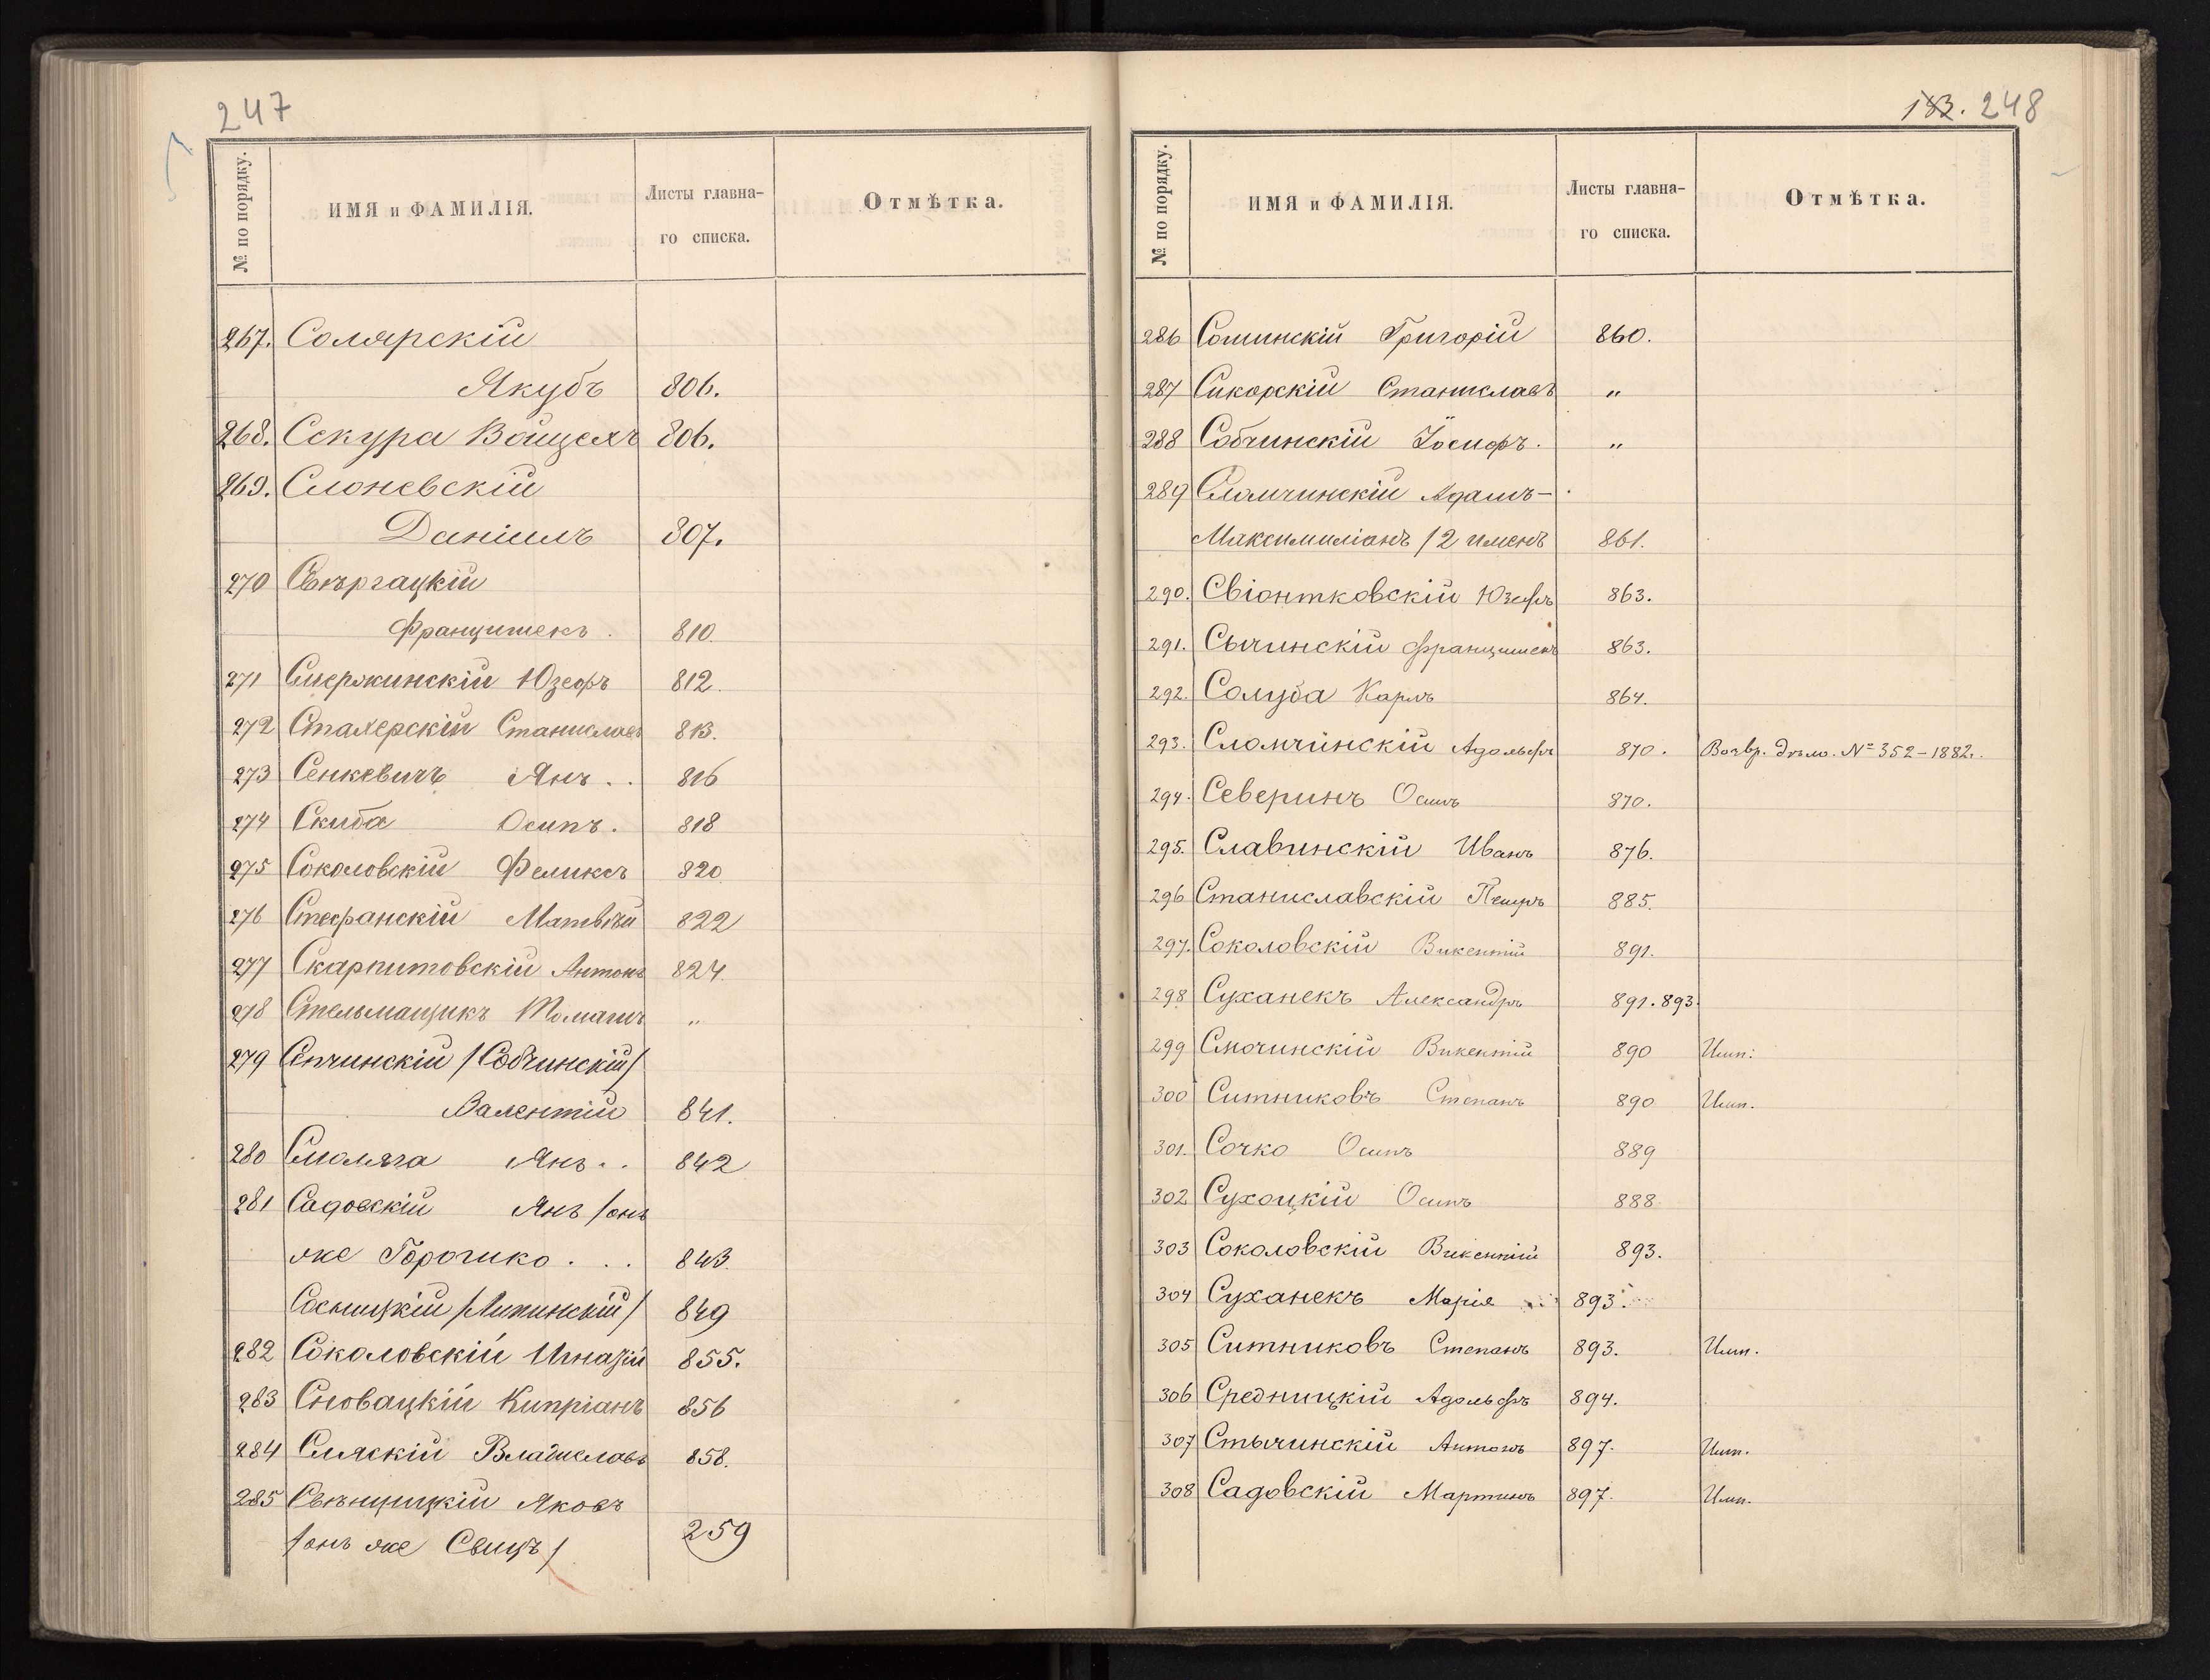 247
№ по порядку.
ИМЯ и ФАМИЛІЯ.
Листы главна-
го списка.
Отмѣтка.
267. Солярскій
Якубъ 806.
268. Секура Войцехъ 806.
269. Слоневскій
Даніилъ 807.
270
Францишекъ. 810.
271 Смержинскій Юзефъ 812.
272 Сталерскій Станиславъ 813.
273 Сенкевичъ Янъ.. 816
274 Скиба Осипъ. 818
275 Соколовскій Феликсъ 820
276 Стефанскій Матвѣй 822
277 Скарпитовскій Антонъ 824.
278 Стельмащикъ Томашъ „
279 Сепчинскій /Собчинскій/
Валентій 841.
280 Смоляга Янъ.. 842
281 Садовскій Янъ /онъ
же Горошко... 843.
Сосницкій /Липинскій/ 849
282 Соколовскій Игнатій 855.
283 Сновацкій Кипріанъ 856
284 Слискій Владиславъ 858.
285 Свѣнцицкій Яковъ
/онъ же Свицъ/ 259
183. 248
№ по порядку.
ИМЯ и ФАМИЛІЯ.
Листы главна-
го списка.
Отмѣтка.
286 Соминскій Григорій 860.
287 Сикорскій Станиславъ „
288 Собчинскій Іосифъ. „
289 Сломчинскій Адамъ-
Максимиліанъ /2 именъ 861.
290. Свіонтковскій Юзефъ 863.
291. Сычинскій Францишекъ 863.
292. Солуба Карлъ 864.
293. Сломчинскій Адольфъ 870. Возвр. дѣло. № 352-1882г.
294. Северинъ Осипъ 870.
295. Славинскій Иванъ 876.
296 Станиславскій Петръ 885.
297. Соколовскій Викентій 891.
298 Суханекъ Александръ 891.893.
299 Смочинскій Викентій 890 Имп.
300 Ситниковъ Степанъ 890 Имп.
301. Сочко Осипъ 889
302 Сухоцкій Осипъ 888
303 Соколовскій Викентій 893.
304 Суханекъ Марія 893.
305 Ситниковъ Степанъ 893. Имп.
306 Средницкій Адольфъ 894.
307 Стычинскій Антонъ 897. Имп.
308 Садовскій Мартинъ 897. Имп.